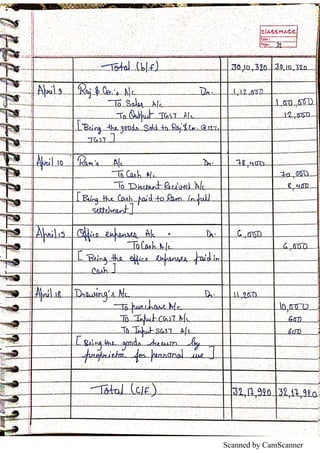 classmate
Date
Page 31
Total (b/f) 30,10,320 30,10,320
April 9 Raj & Co.'s A/c Dr. 1,12,000
To Sales A/c 1,00,000
To Output IGST A/c 12,000
[Being the goods Sold to Raj & Co. @ 12%
IGST]
April 10 Ram's A/c Dr. 78,400
To Cash A/c 70,000
To Discount Received A/c 8,400
[Being the Cash paid to Ram in full
settlement]
April 15 Office expenses A/c Dr. 6,000
To Cash A/c 6,000
[Being the office expenses paid in
cash]
April 18 Drawing's A/c Dr. 11,200
To purchase A/c 10,000
To Input CGST A/c 600
To Input SGST A/c 600
[Being the goods drawn by
proprietor for personal use]
Total (C/F) 32,17,920 32,17,920
Scanned by CamScanner